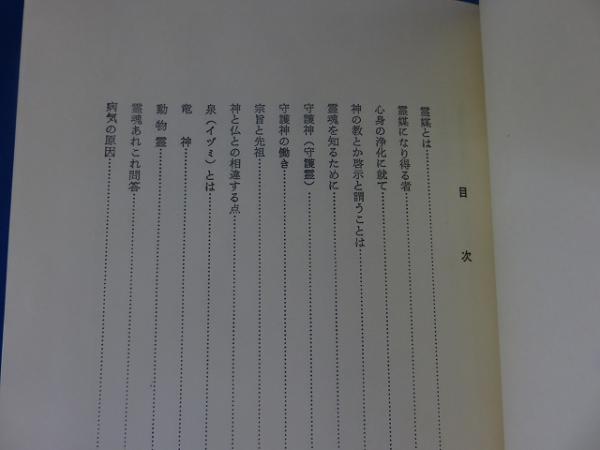 目次
霊媒とは
霊媒になり得る者
心身の浄化に就て
神の教とか啓示と謂うことは
霊魂を知るために
守護神（守護霊）
守護神の働き
宗旨と先祖
神と仏との相違する点
泉（イヅミ）とは
竜神
動物霊
霊魂あれこれ問答
病気の原因